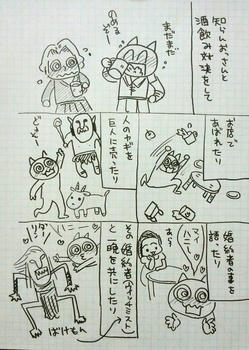 知らんおっさんと
酒飲み対決をして
まだまだ
のめる
ぞー
お店で
あばれたり
人のヤギを
巨人に売ったり
どぇー
婚約者の事を
語ったり
マイ
ハニー
あら
その婚約者(ウィッチミスト
と一晩を共にしたり
ダーリン
ばけもん